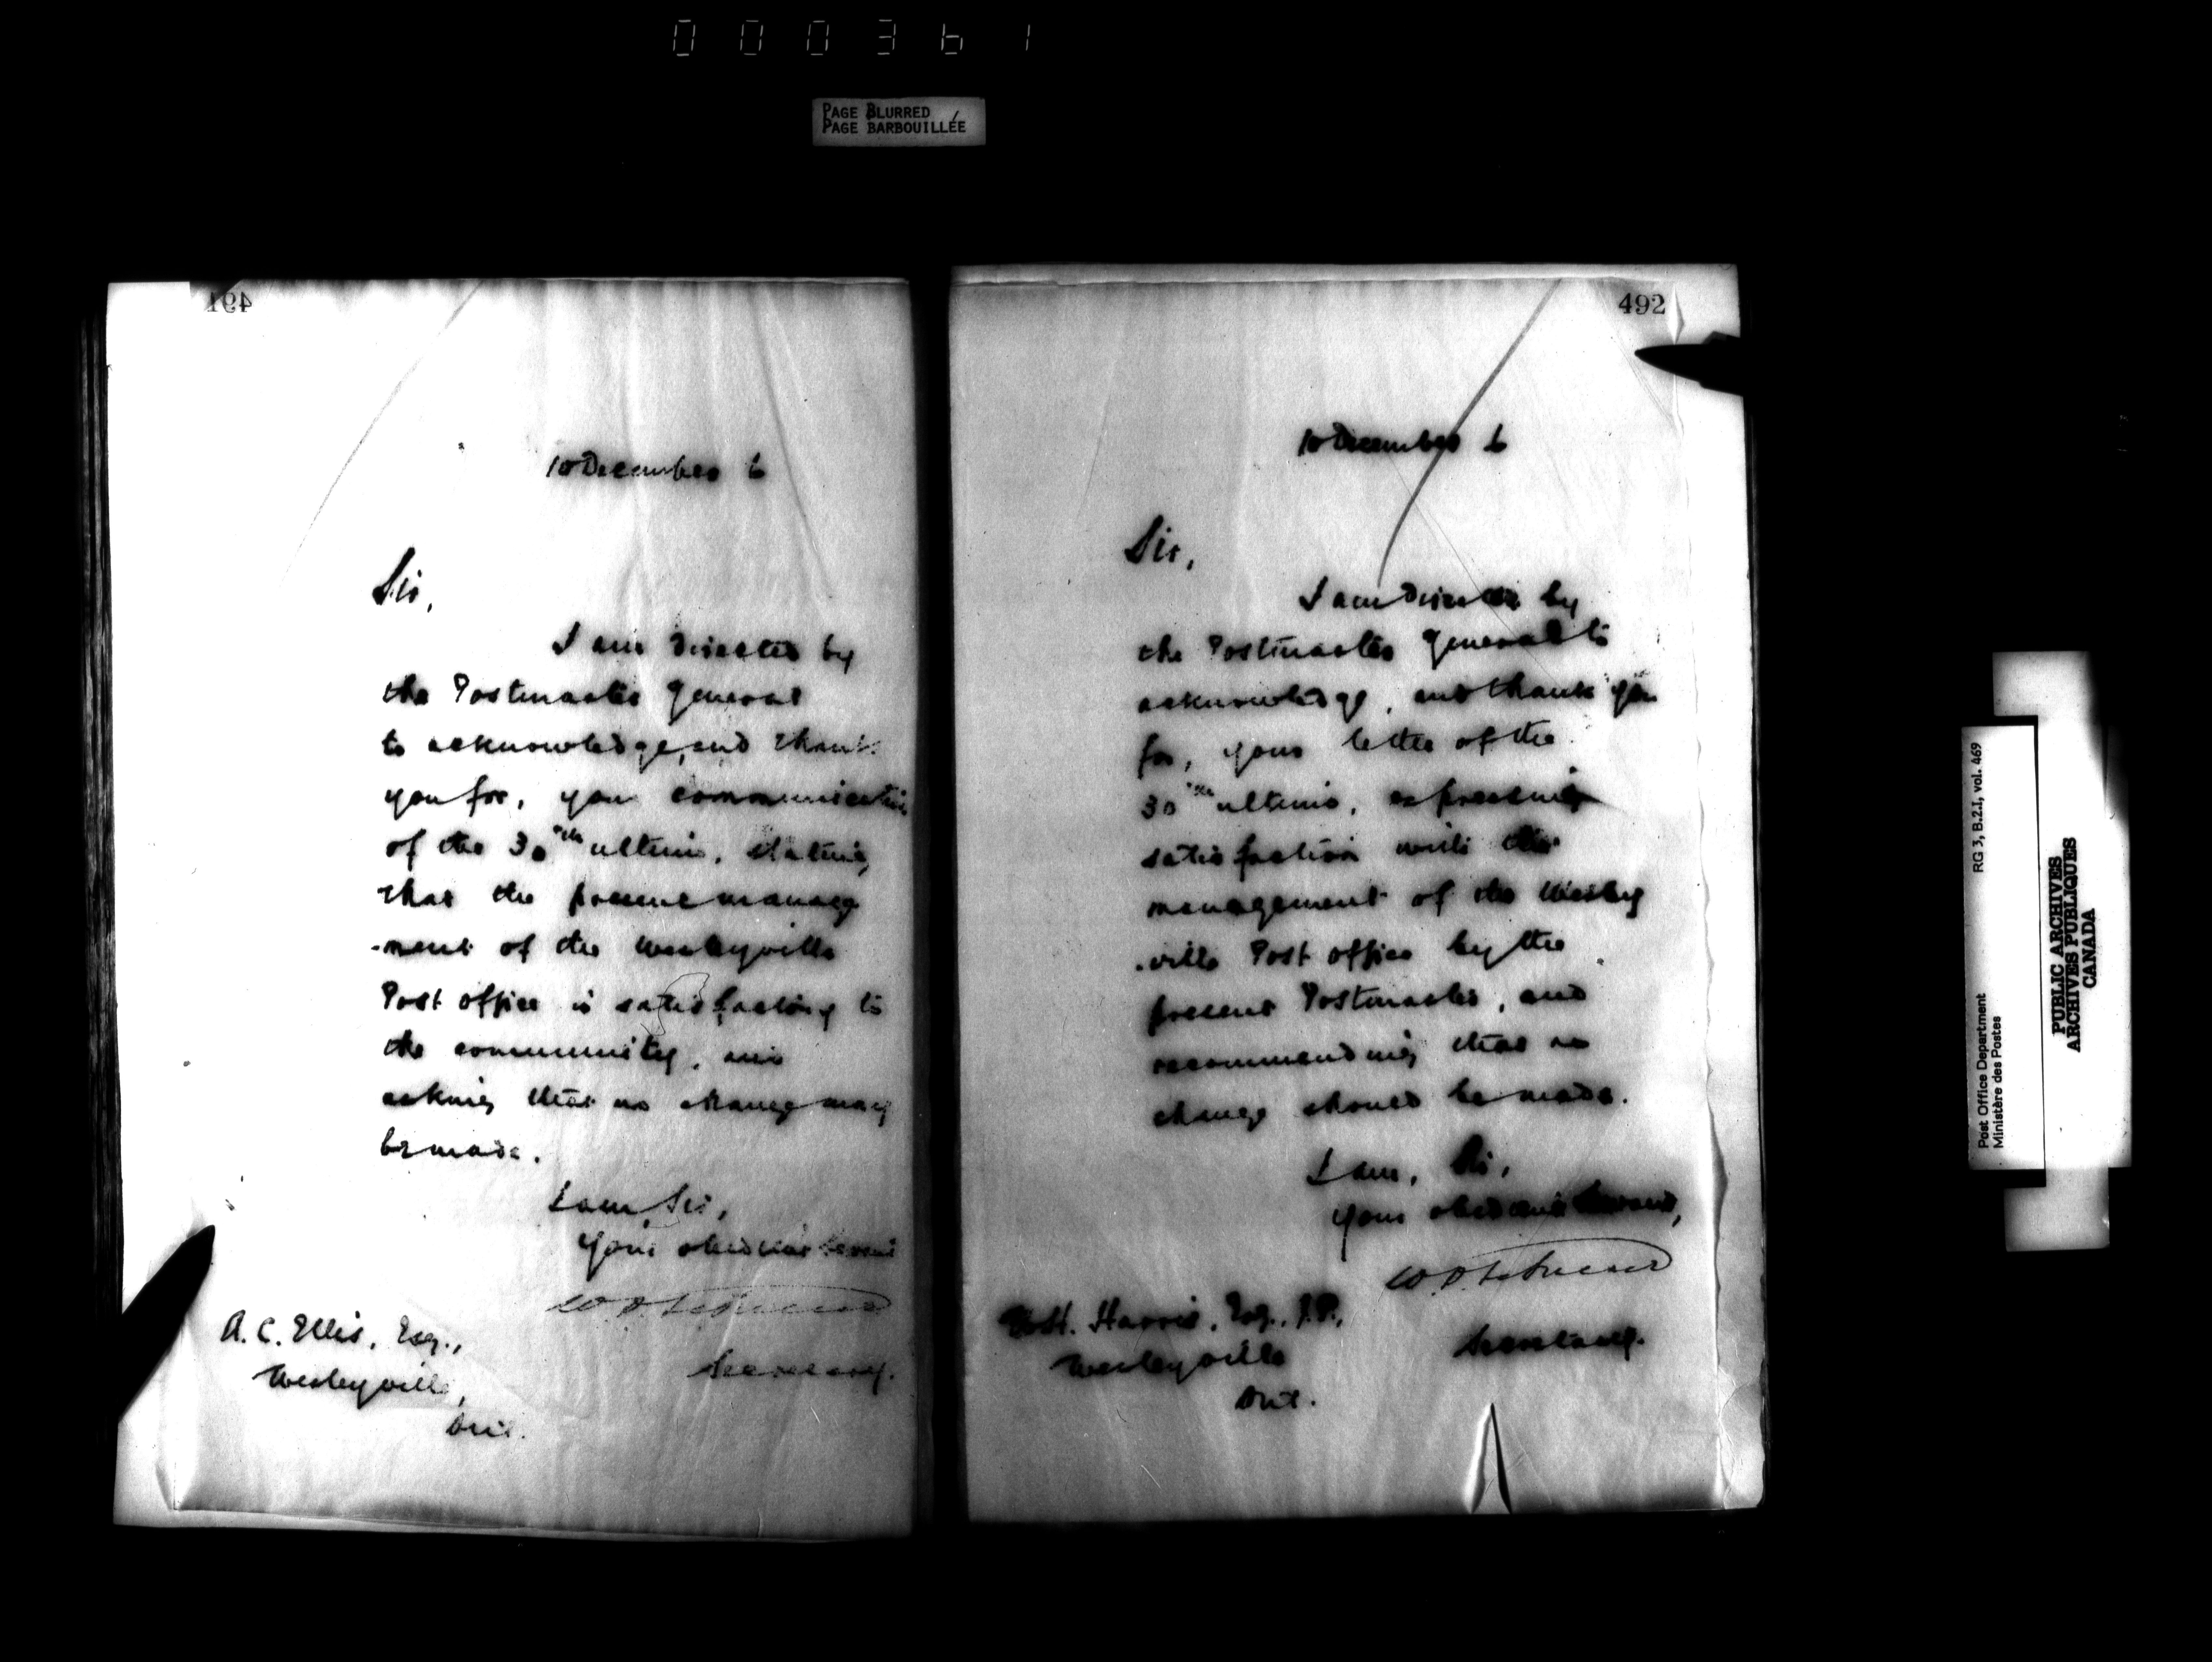 000361
PAGE BLURRED
PAGE BARBOUILLÉE
491
10 December 6
Sir,
I am directed by
the Postmaster General
to acknowledge, and thank
you for, your communication
of the 30th ultimo, stating
that the present manage
-ment of the Wesleyville
Post office is satisfactory to
the community, and
asking that no change may
be made.
I am, Sir,
Your obedient servant
Secretary.
A. C. Ellis, Esq.,
Wesleyville,
Ont.
492
10 December 6
Sir,
I am directed by
the Postmaster General to
acknowledge, and thank you
for, your letter of the
30th ultimo, expressing
satisfaction with the
management of the Wesley
-ville Post office by the
present Postmaster, and
recommending that no
change should be made.
I am, Sir,
Your obedient servant,
Secretary.
H. Harris, Esq., J.P.,
Wesleyville
Ont.
Post Office Department
Ministère des Postes
RG 3, B.2.I, vol. 469
PUBLIC ARCHIVES
ARCHIVES PUBLIQUES
CANADA